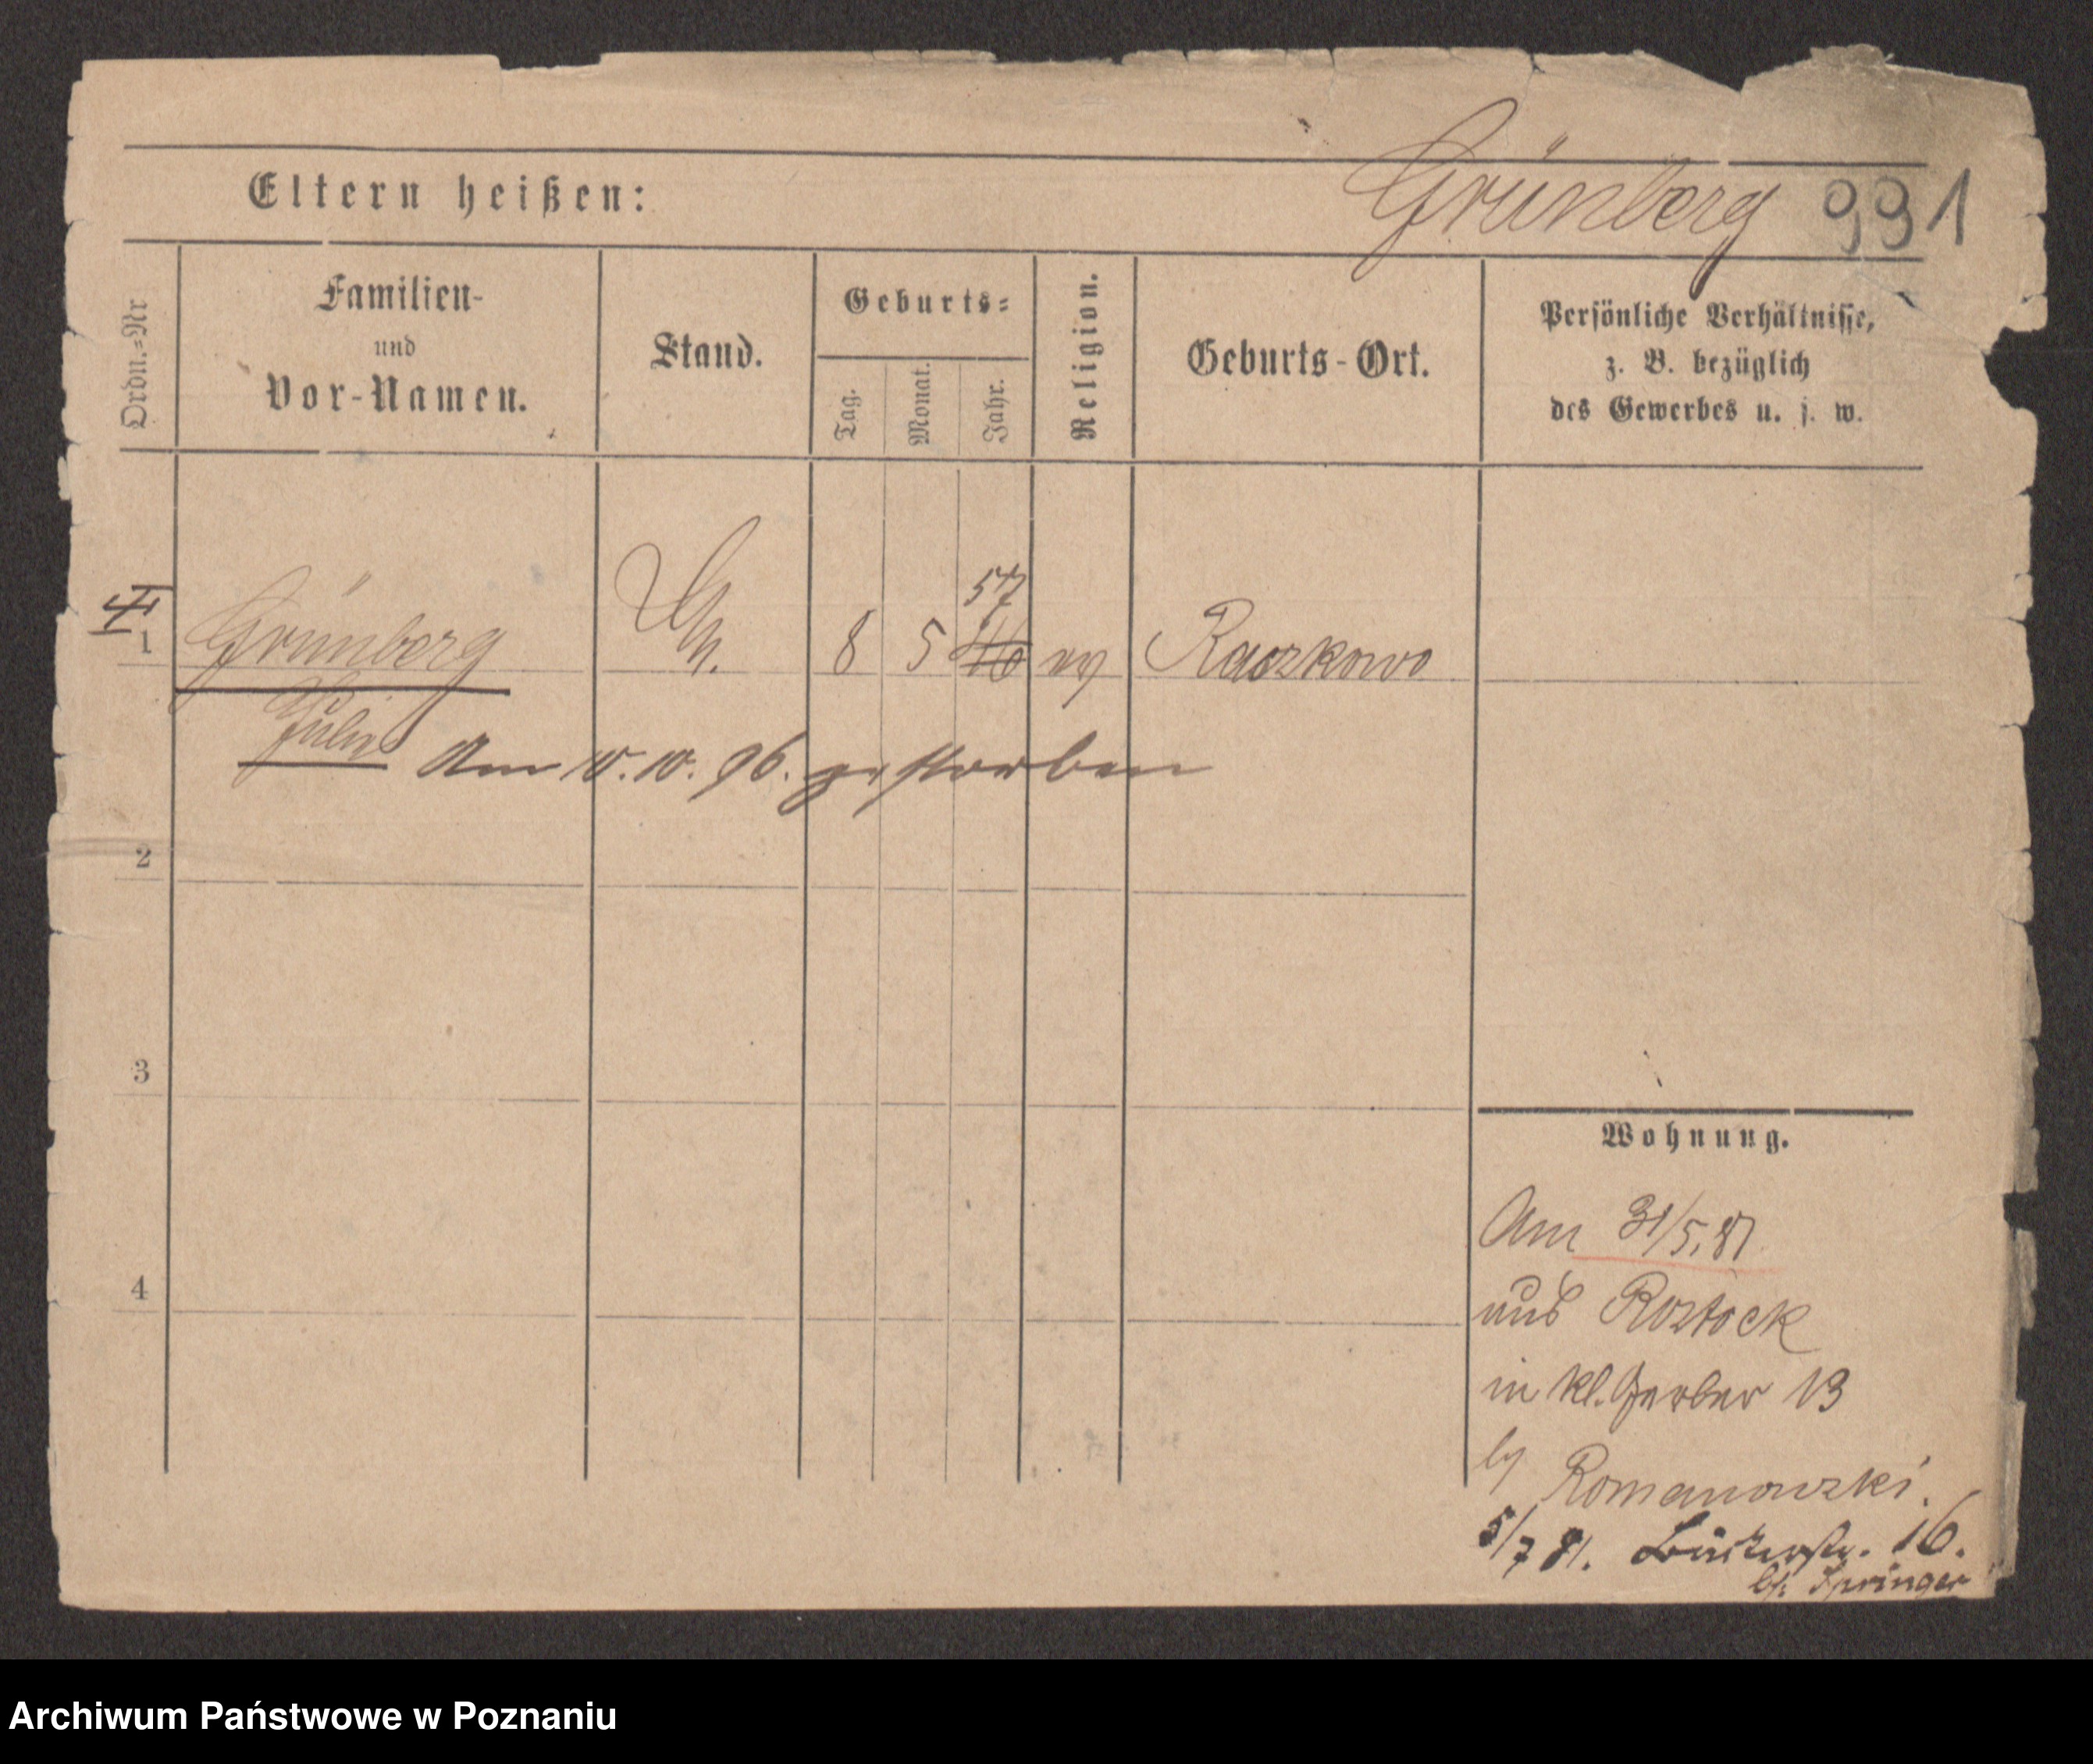 Grünberg 991
Eltern heißen:
Ordn.=Nr
Familien-
und
Vor-Namen.
Stand.
Geburts=
Tag.
Monat.
Jahr.
Religion.
Geburts-Ort.
Persönliche Verhältnisse,
z. B. bezüglich
des Gewerbes u. s. w.
57
1 Grünberg 8 5 46 Raczkowo
Julie Am 10. 10. 96. gestorben
2
3
4
Wohnung.
Am 31/5.81
aus Rostock
in kl. Gerber 13
bei Romanowski.
5/7 81. 16.
bei Springer
Archiwum Państwowe w Poznaniu